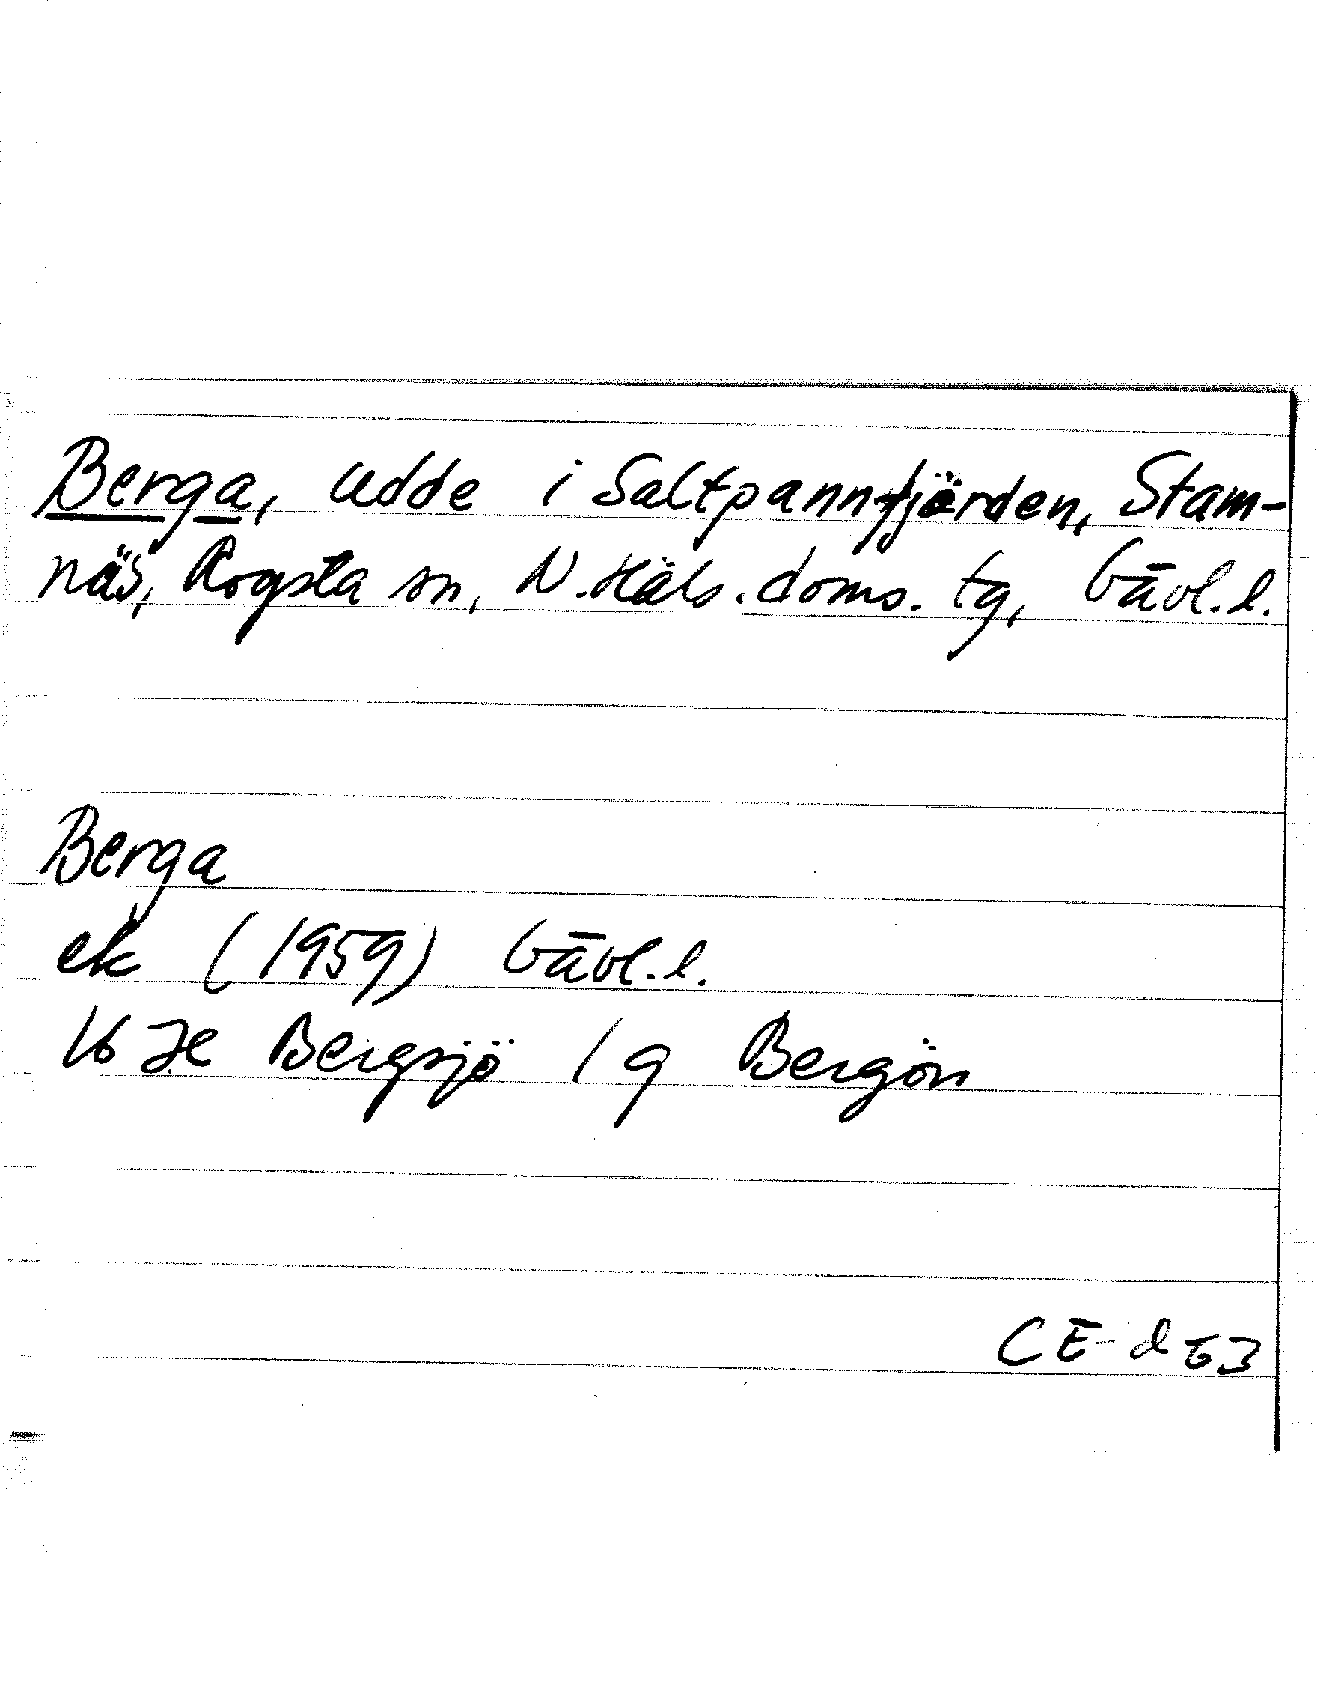 Berga, udde i Saltpannfjärden, Stam-
näs, Rogsta sn, N.Häls.doms.tg, Gävl.l.
Berga
ek (1959) Gävl.l.
16 H Bergsjö 1 g Bergön
CE-d 63